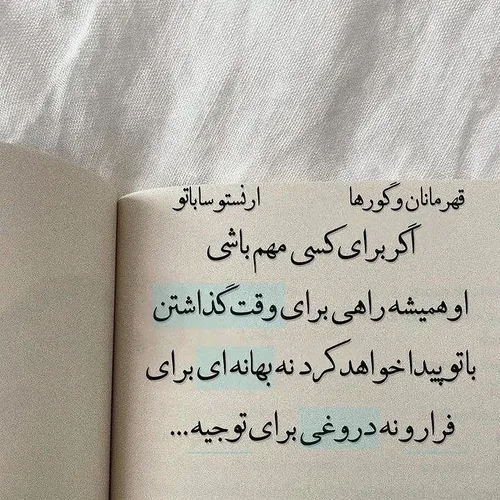 قهرمانان و گورها ارنستو ساباتو
اگر برای کسی مهم باشی
او همیشه راهی برای وقت گذاشتن
با تو پیدا خواهد کرد نه بهانه ای برای
فرار و نه دروغی برای توجیه...